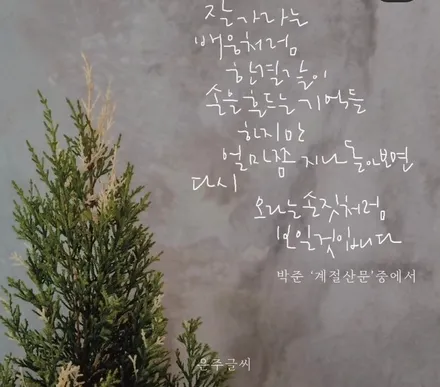 잘 가라는
배웅처럼
한결같이
손을 흔드는 기억들
하지만
얼마쯤 지나 돌아보면
다시
오라는 손짓처럼
보일 것입니다
박준 '계절산문'중에서
윤주글씨